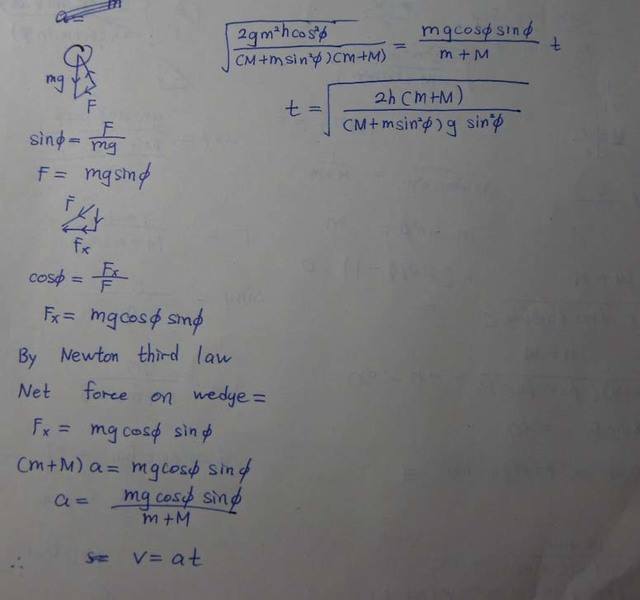 mg
F
sinϕ = F/mg
F = mgsinϕ
F
Fx
cosϕ = Fx/F
Fx = mgcosϕ sinϕ
By Newton third law
Net force on wedge =
Fx = mgcosϕ sinϕ
(m+M) a = mgcosϕ sinϕ
a = mgcosϕ sinϕ / m+M
∴ v = at
√(2gm²hcos²ϕ / (M+msin²ϕ)(m+M)) = mgcosϕsinϕ / m+M t
t = √(2h(m+M) / (M+msin²ϕ)g sin²ϕ)